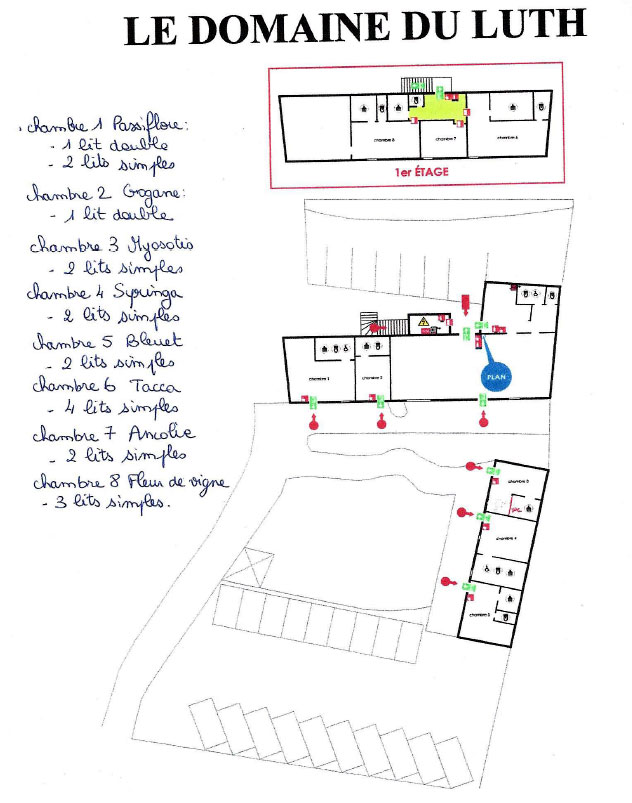 LE DOMAINE DU LUTH
chambre 1 Passiflore:
- 1 lit double
- 2 lits simples
chambre 2 Gogane:
- 1 lit double
chambre 3 Myosotis
- 2 lits simples
chambre 4 Syringa
- 2 lits simples
chambre 5 Bleuet
- 2 lits simples
chambre 6 Tacca
- 4 lits simples
chambre 7 Ancolie
- 2 lits simples
chambre 8 Fleur de vigne
- 3 lits simples.
chambre 6
chambre 7
chambre 8
1er ÉTAGE
chambre 1
chambre 2
PLAN
chambre 3
chambre 4
chambre 5